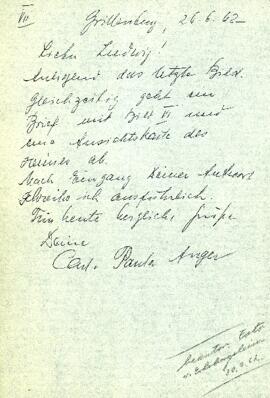 VII Grillenburg, 26.6.62
Lieber Ludwig!
Anliegend das letzte Bild.
Gleichzeitig geht ein
Brief mit Bild VI und
eine Ansichtskarte des
ab.
Nach Eingang Deiner Antwort
schreibe ich ausführlich.
Für heute herzliche Grüße
Deine
Paula Anger